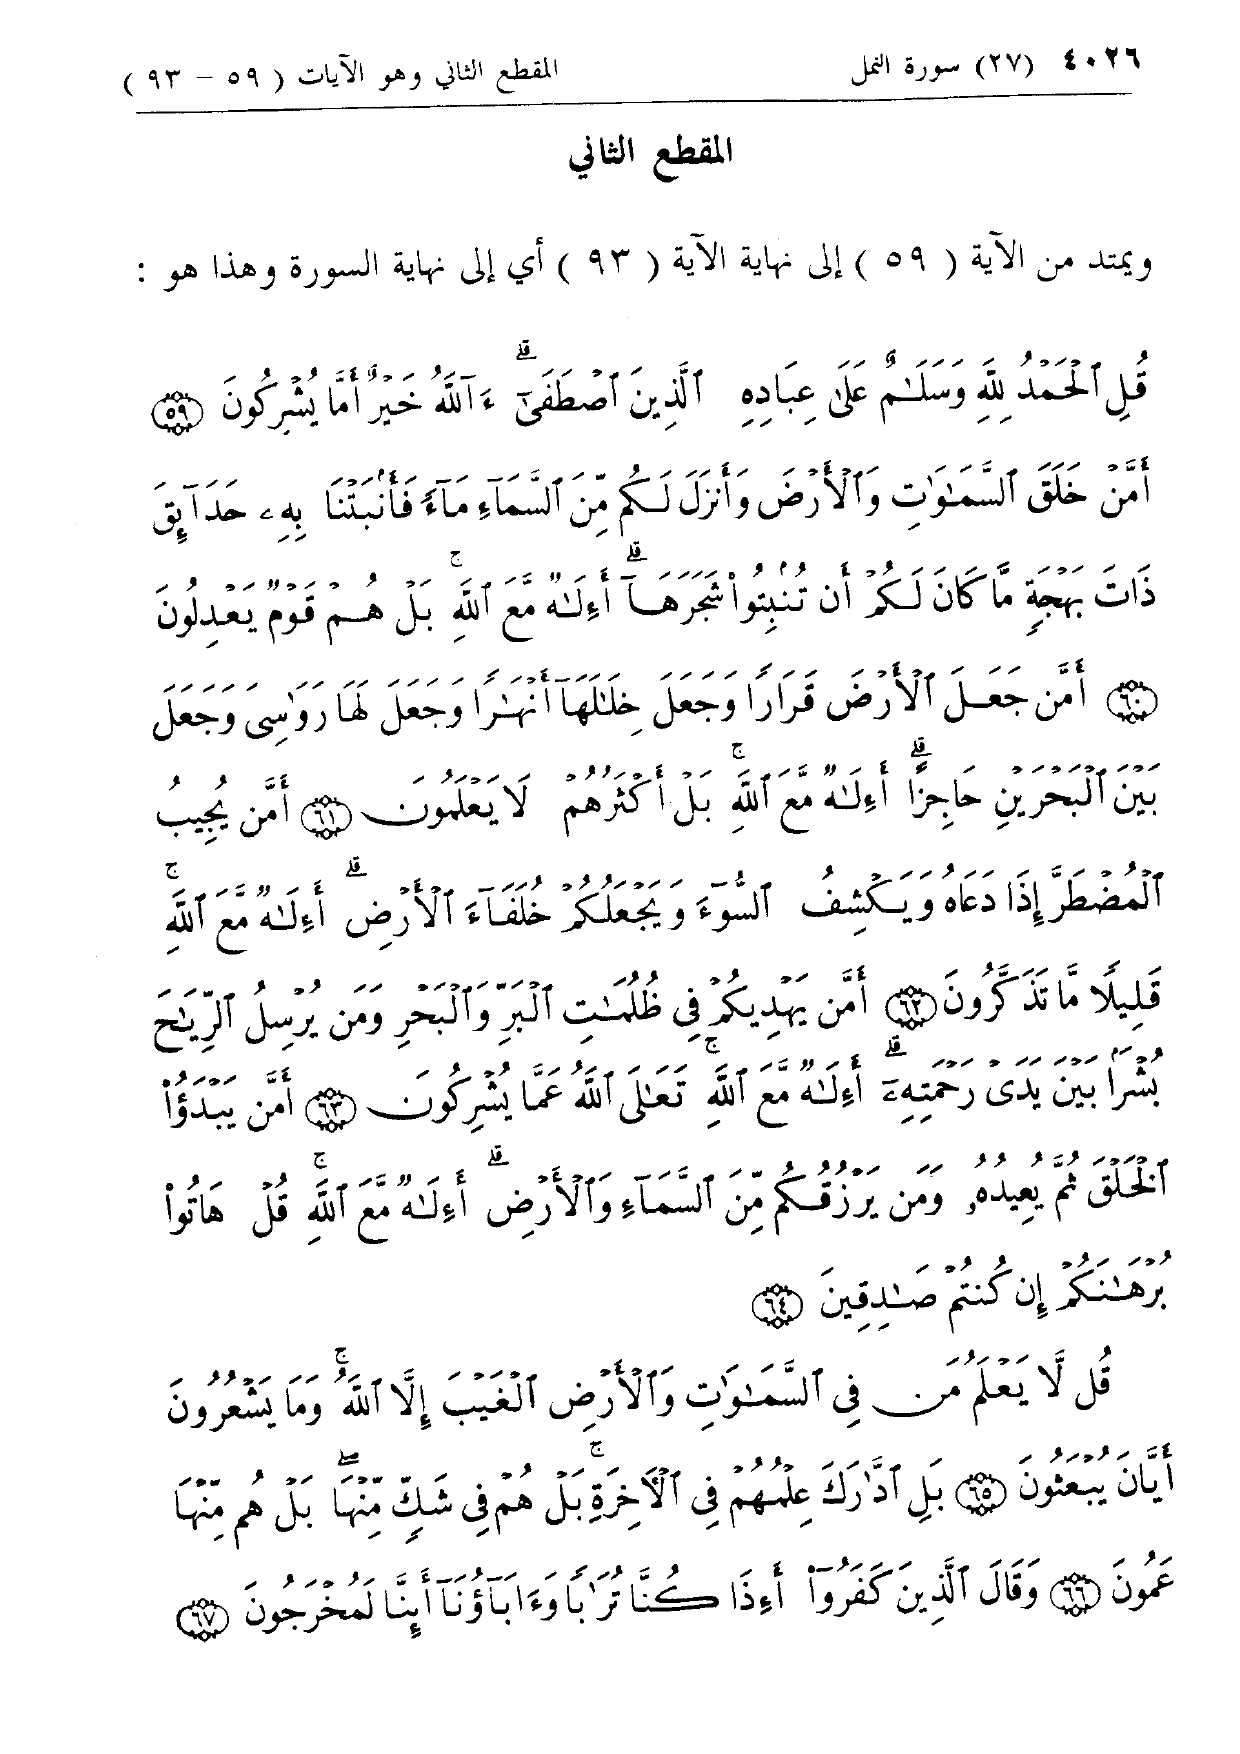 ٤٠٢٦ (٢٧) سورة النمل المقطع الثاني وهو الآيات ( ٥٩ - ٩٣ )
المقطع الثاني
ويمتد من الآية ( ٥٩ ) إلى نهاية الآية ( ٩٣ ) أي إلى نهاية السورة وهذا هو :
قُلِ ٱلْحَمْدُ لِلَّهِ وَسَلَـٰمٌ عَلَىٰ عِبَادِهِ ٱلَّذِينَ ٱصْطَفَىٰٓ ۗ ءَآللَّهُ خَيْرٌ أَمَّا يُشْرِكُونَ ٥٩
أَمَّنْ خَلَقَ ٱلسَّمَـٰوَٰتِ وَٱلْأَرْضَ وَأَنزَلَ لَكُم مِّنَ ٱلسَّمَآءِ مَآءً فَأَنۢبَتْنَا بِهِۦ حَدَآئِقَ
ذَاتَ بَهْجَةٍ مَّا كَانَ لَكُمْ أَن تُنۢبِتُوا۟ شَجَرَهَآ ۗ أَءِلَـٰهٌ مَّعَ ٱللَّهِ ۚ بَلْ هُمْ قَوْمٌ يَعْدِلُونَ
٦٠ أَمَّن جَعَلَ ٱلْأَرْضَ قَرَارًا وَجَعَلَ خِلَـٰلَهَآ أَنْهَـٰرًا وَجَعَلَ لَهَا رَوَٰسِىَ وَجَعَلَ
بَيْنَ ٱلْبَحْرَيْنِ حَاجِزًا ۗ أَءِلَـٰهٌ مَّعَ ٱللَّهِ ۚ بَلْ أَكْثَرُهُمْ لَا يَعْلَمُونَ ٦١ أَمَّن يُجِيبُ
ٱلْمُضْطَرَّ إِذَا دَعَاهُ وَيَكْشِفُ ٱلسُّوٓءَ وَيَجْعَلُكُمْ خُلَفَآءَ ٱلْأَرْضِ ۗ أَءِلَـٰهٌ مَّعَ ٱللَّهِ ۚ
قَلِيلًا مَّا تَذَكَّرُونَ ٦٢ أَمَّن يَهْدِيكُمْ فِى ظُلُمَـٰتِ ٱلْبَرِّ وَٱلْبَحْرِ وَمَن يُرْسِلُ ٱلرِّيَـٰحَ
بُشْرًۢا بَيْنَ يَدَىْ رَحْمَتِهِۦٓ ۗ أَءِلَـٰهٌ مَّعَ ٱللَّهِ ۚ تَعَـٰلَى ٱللَّهُ عَمَّا يُشْرِكُونَ ٦٣ أَمَّن يَبْدَؤُا۟
ٱلْخَلْقَ ثُمَّ يُعِيدُهُۥ وَمَن يَرْزُقُكُم مِّنَ ٱلسَّمَآءِ وَٱلْأَرْضِ ۗ أَءِلَـٰهٌ مَّعَ ٱللَّهِ ۚ قُلْ هَاتُوا۟
بُرْهَـٰنَكُمْ إِن كُنتُمْ صَـٰدِقِينَ ٦٤
قُل لَّا يَعْلَمُ مَن فِى ٱلسَّمَـٰوَٰتِ وَٱلْأَرْضِ ٱلْغَيْبَ إِلَّا ٱللَّهُ ۚ وَمَا يَشْعُرُونَ
أَيَّانَ يُبْعَثُونَ ٦٥ بَلِ ٱدَّٰرَكَ عِلْمُهُمْ فِى ٱلْـَٔاخِرَةِ ۚ بَلْ هُمْ فِى شَكٍّ مِّنْهَا ۖ بَلْ هُم مِّنْهَا
عَمُونَ ٦٦ وَقَالَ ٱلَّذِينَ كَفَرُوٓا۟ أَءِذَا كُنَّا تُرَٰبًا وَءَابَآؤُنَآ أَئِنَّا لَمُخْرَجُونَ ٦٧